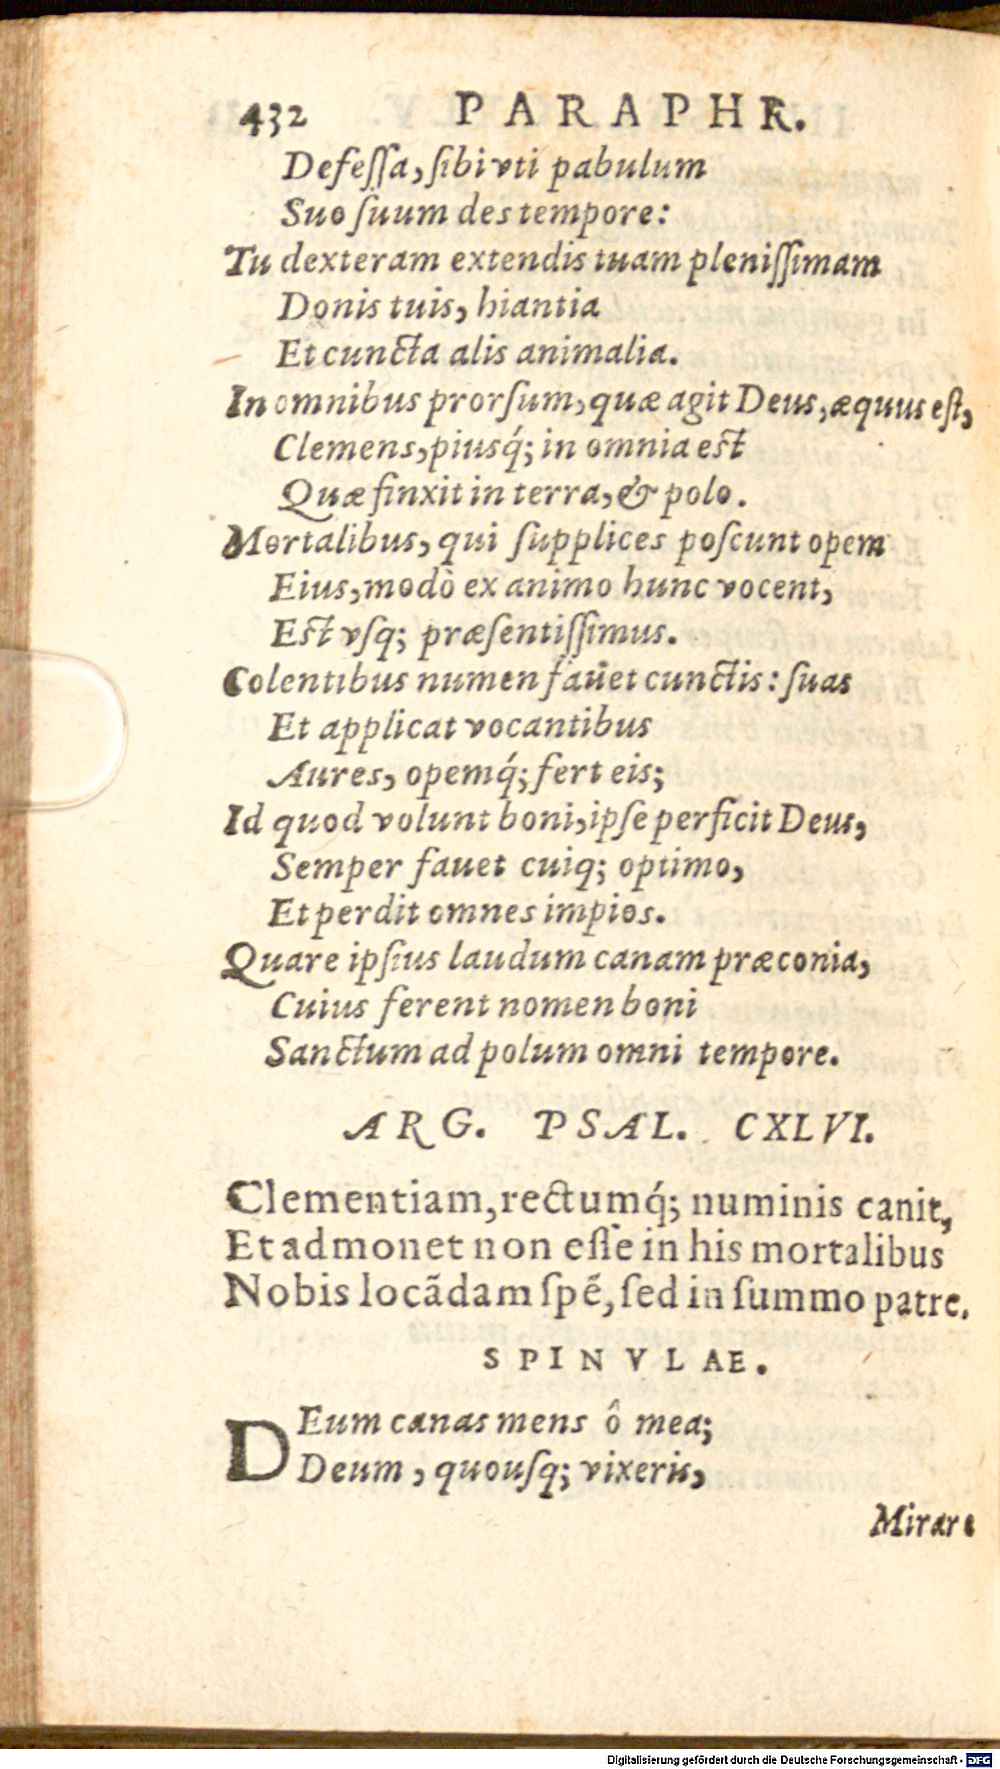 432 PARAPHR.
Defeſſa, ſibi vti pabulum
Suo ſuum des tempore:
Tu dexteram extendis tuam pleniſſimam
Donis tuis, hiantia
Et cuncta alis animalia.
In omnibus prorſum, quæ agit Deus, æquus eſt,
Clemens, piusq́; in omnia eſt
Quæ finxit in terra, & polo.
Mortalibus, qui ſupplices poſcunt opem
Eius, modò ex animo hunc vocent,
Eſt vſq; præſentiſſimus.
Colentibus numen fauet cunctis: ſuas
Et applicat vocantibus
Aures, opemq́; fert eis;
Id quod volunt boni, ipſe perficit Deus,
Semper fauet cuiq; optimo,
Et perdit omnes impios.
Quare ipſius laudum canam præconia,
Cuius ferent nomen boni
Sanctum ad polum omni tempore.
ARG. PSAL. CXLVI.
Clementiam, rectumq́; numinis canit,
Et admonet non eſſe in his mortalibus
Nobis locãdam ſpẽ, ſed in ſummo patre.
SPINVLAE.
DEum canas mens ô mea;
Deum, quouſq; vixeris,
Mirari
Digitalisierung gefördert durch die Deutsche Forschungsgemeinschaft - DFG